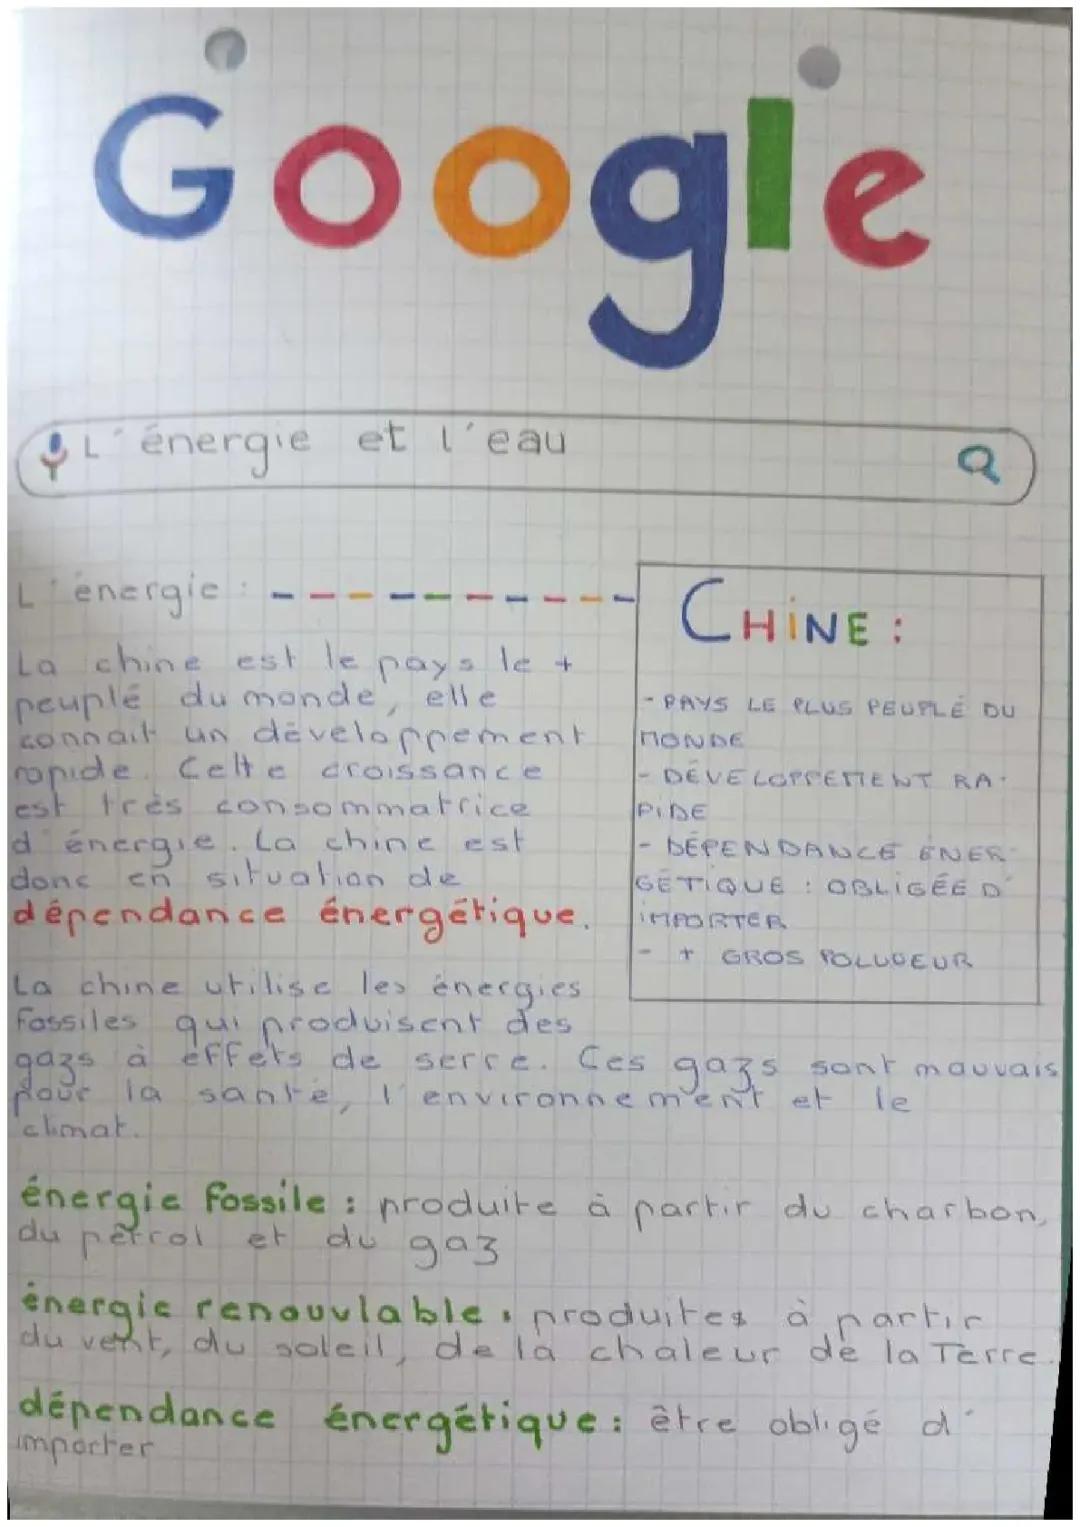 Google
L'énergie et l'eau
L'énergie :
La chine est le pays le +
peuplé du monde, elle
connait un développement
rapide. Cette croissance
est très consommatrice
d'énergie. La chine est
donc en situation de
dépendance énergétique.
CHINE :
- PAYS LE PLUS PEUPLÉ DU
MONDE
- DÉVELOPPEMENT RA-
PIDE
- DÉPENDANCE ÉNER-
GÉTIQUE : OBLIGÉE D'
IMPORTER
- + GROS POLLUEUR
La chine utilise les énergies
fossiles qui produisent des
gazs à effets de serre. Ces gazs sont mauvais
pour la santé, l'environnement et le
climat.
énergie fossile : produite à partir du charbon,
du pétrol et du gaz
énergie renouvlable : produites à partir
du vent, du soleil, de la chaleur de la Terre.
dépendance énergétique : être obligé d'
importer